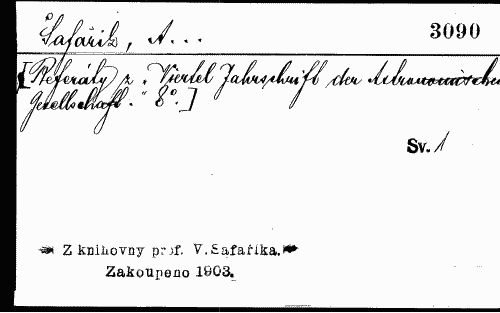 Šafařík, A...
3090
[Referáty z „Viertel Jahrschrift der Astronomischen
Gesellschaft.“ 8°.]
Sv. 1
Z knihovny prof. V. Šafaříka.
Zakoupeno 1903.